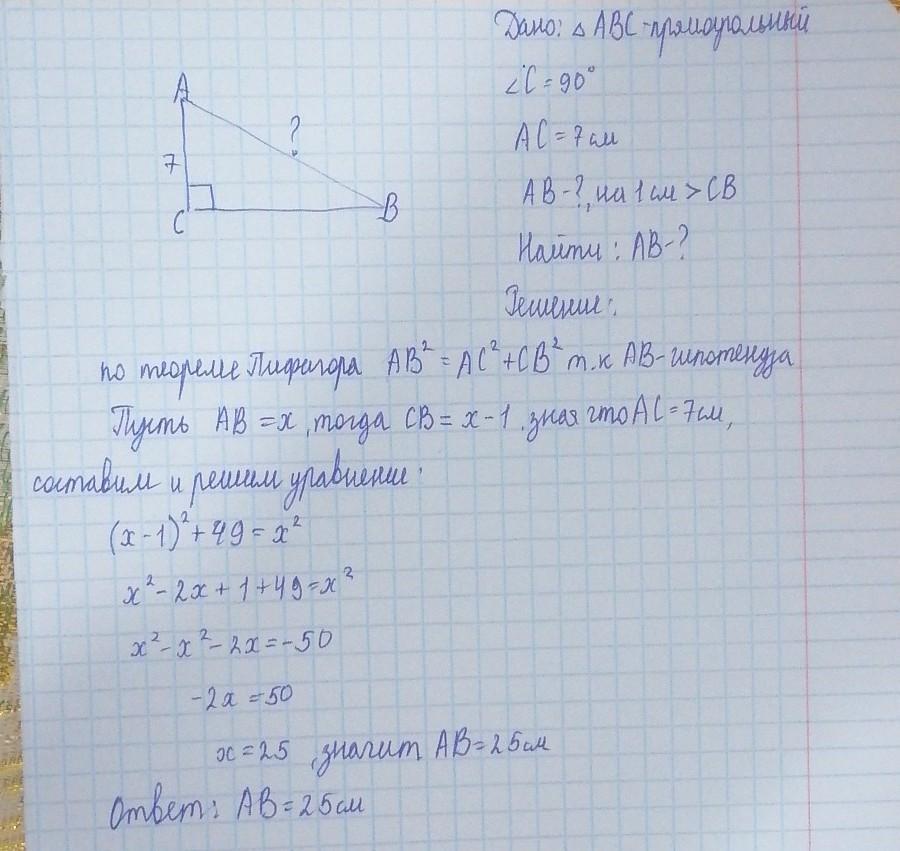 Дано: △ ABC-прямоугольный
∠C = 90°
AC = 7 см
AB-?, на 1 см > CB
Найти: AB-?
Решение:
A
?
7
C
B
по теореме Пифагора AB² = AC² + CB² т.к AB-гипотенуза
Пусть AB = x, тогда CB = x - 1, зная что AC = 7 см,
составим и решим уравнение:
(x - 1)² + 49 = x²
x² - 2x + 1 + 49 = x²
x² - x² - 2x = -50
-2x = -50
x = 25, значит AB = 25 см
Ответ: AB = 25 см